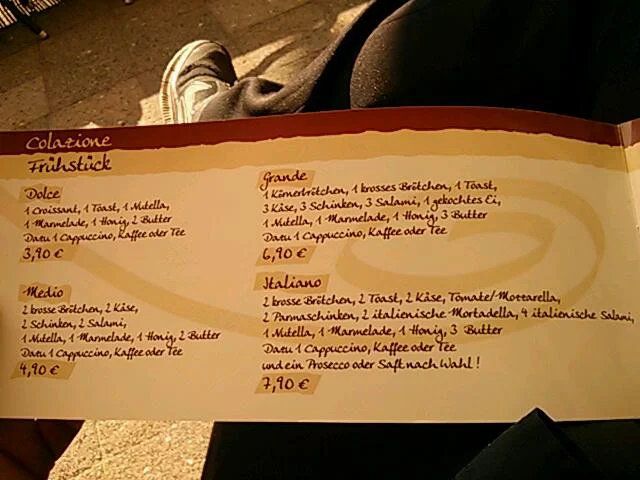 Colazione
Frühstück
Dolce
1 Croissant, 1 Toast, 1 Nutella,
1 Marmelade, 1 Honig, 2 Butter
Dazu 1 Cappuccino, Kaffee oder Tee
3,90 €
Medio
2 krosse Brötchen, 2 Käse,
2 Schinken, 2 Salami,
1 Nutella, 1 Marmelade, 1 Honig, 2 Butter
Dazu 1 Cappuccino, Kaffee oder Tee
4,90 €
Grande
1 Körnerbrötchen, 1 krosses Brötchen, 1 Toast,
3 Käse, 3 Schinken, 3 Salami, 1 gekochtes Ei,
1 Nutella, 1 Marmelade, 1 Honig, 3 Butter
Dazu 1 Cappuccino, Kaffee oder Tee
6,90 €
Italiano
2 krosse Brötchen, 2 Toast, 2 Käse, Tomate/Mozzarella,
2 Parmaschinken, 2 italienische Mortadella, 4 italienische Salami,
1 Nutella, 1 Marmelade, 1 Honig, 3 Butter
Dazu 1 Cappuccino, Kaffee oder Tee
und ein Prosecco oder Saft nach Wahl!
7,90 €